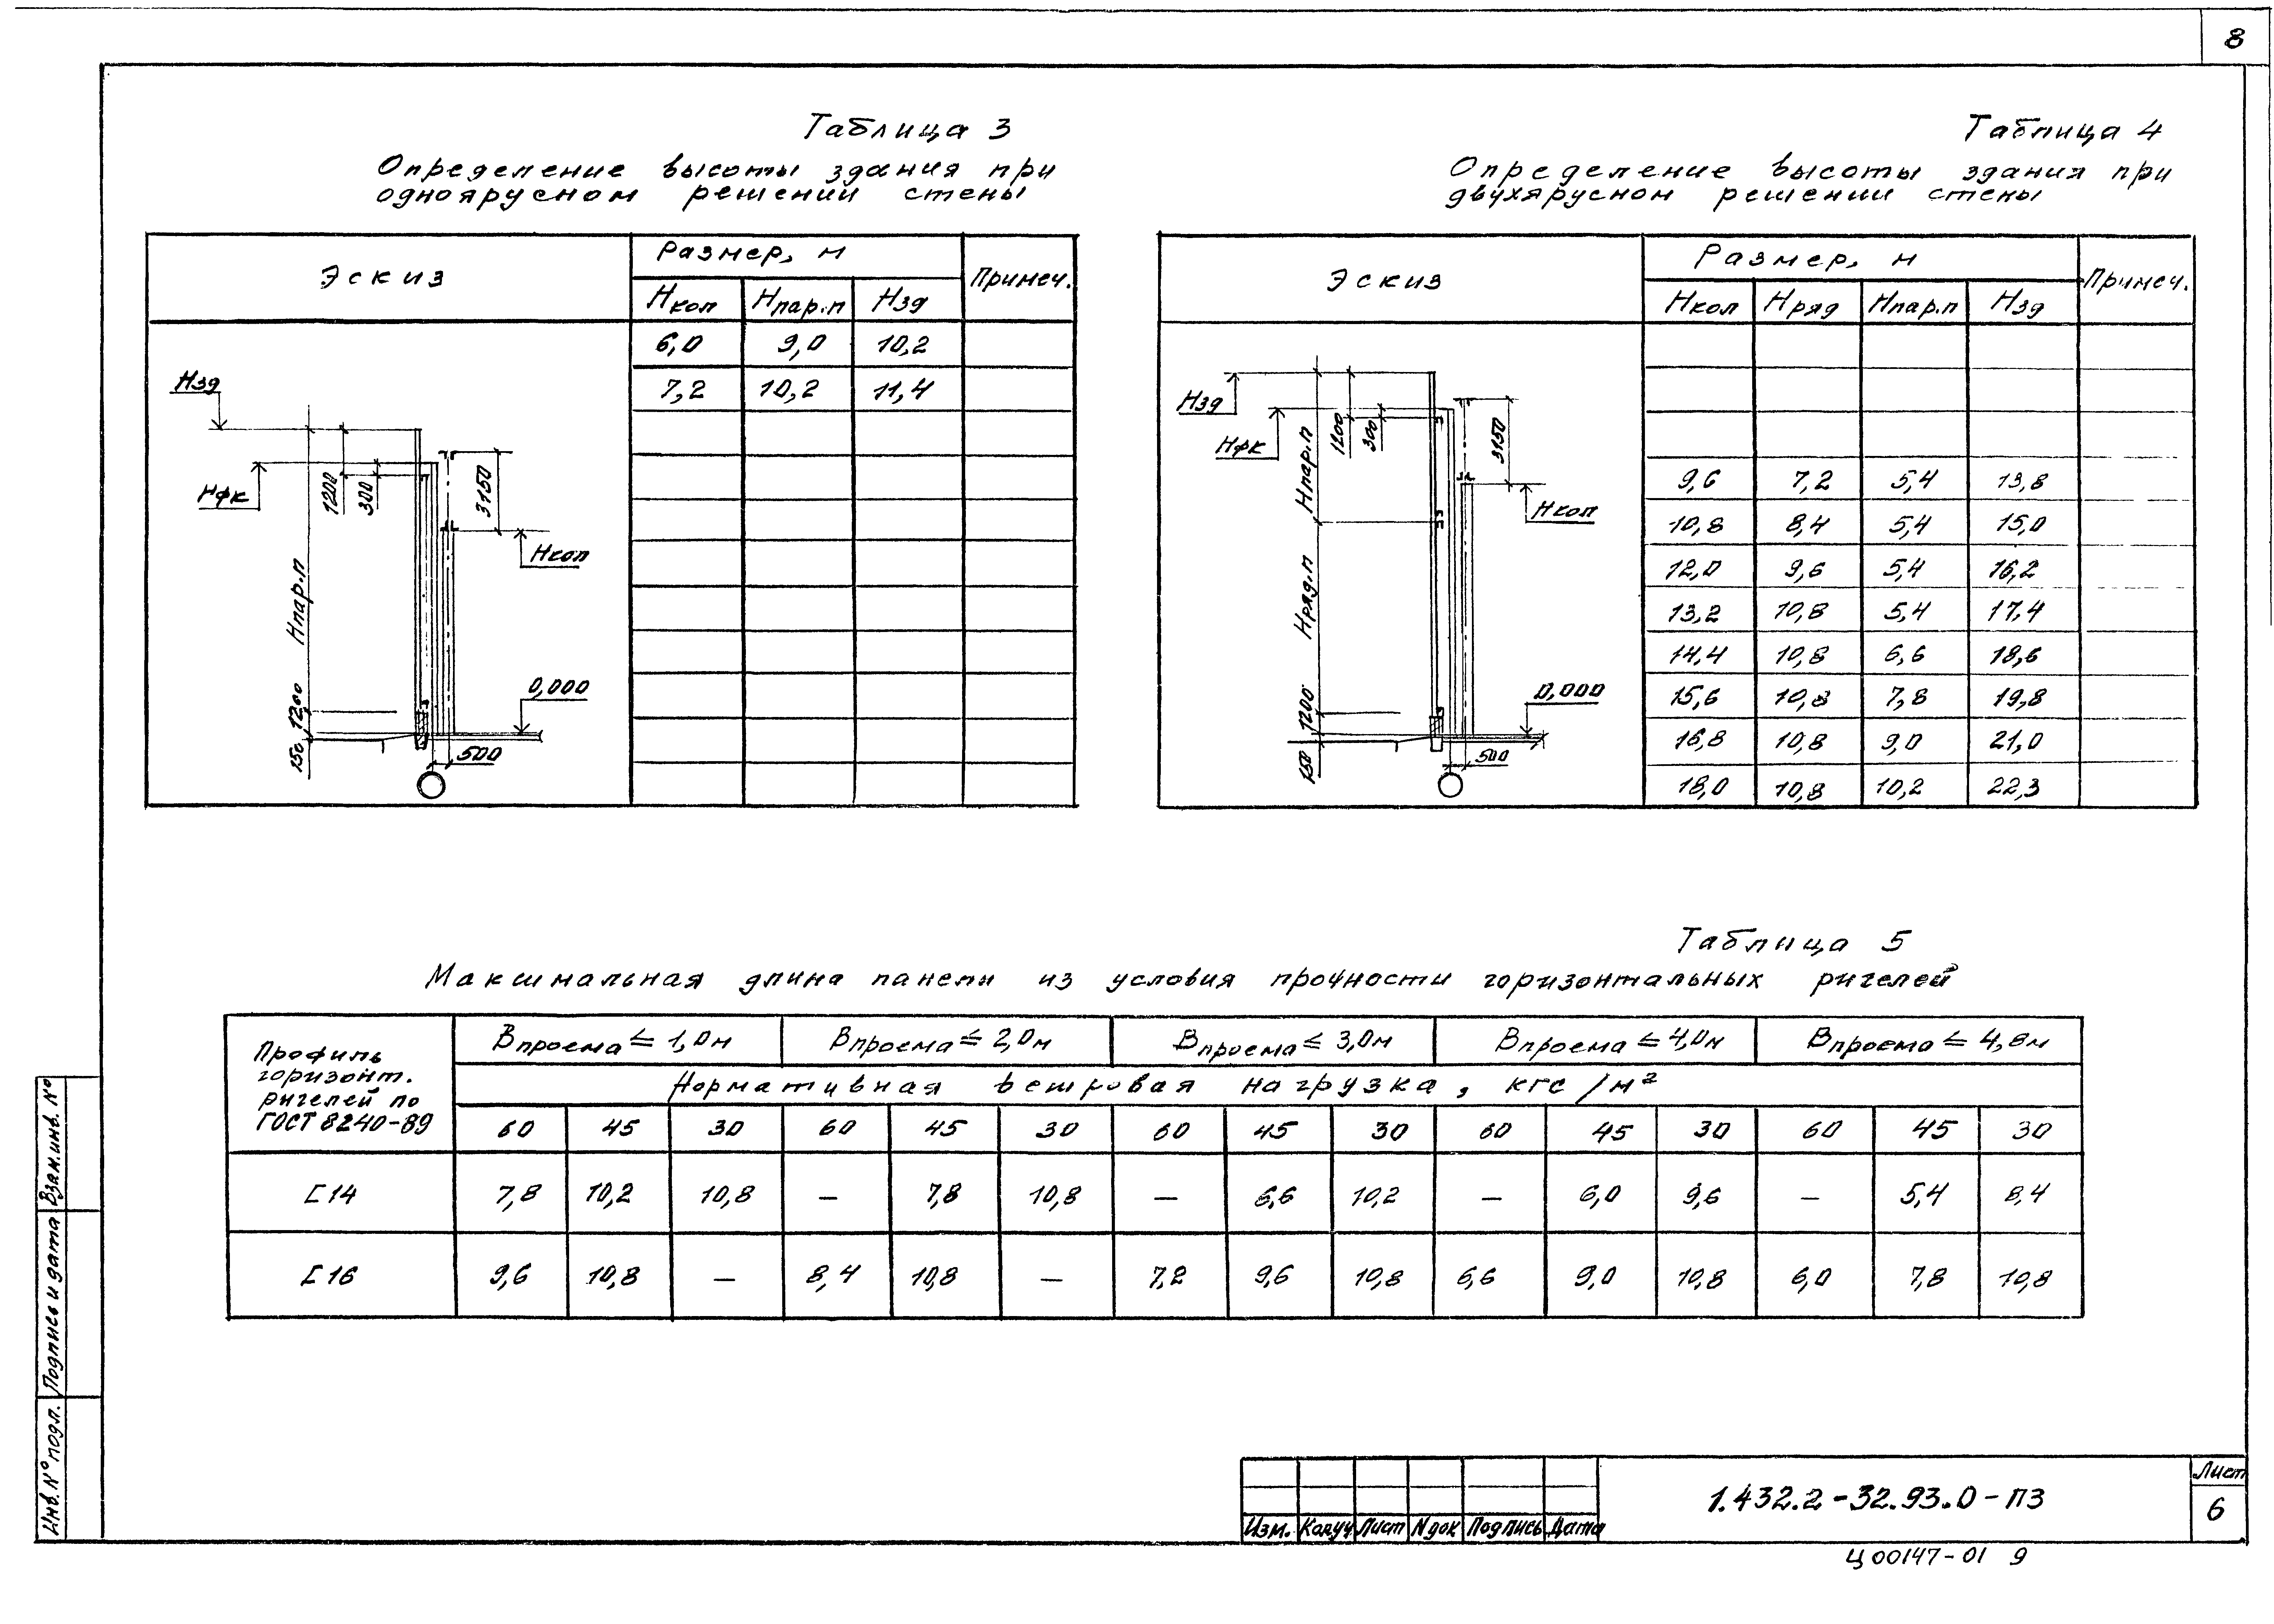 8
Таблица 3
Определение высоты здания при
одноярусном решении стены
Эскиз
Размер, м
Примеч.
Нкол Нпар.п Нзд
6,0 9,0 10,2
7,2 10,2 11,4
Нзд
Нфк
1200
300
3150
Нкол
Нпар.п
0,000
1200
150
500
Таблица 4
Определение высоты здания при
двухярусном решении стены
Эскиз
Размер, м
Примеч.
Нкол Нряд Нпар.п Нзд
9,6 7,2 5,4 13,8
10,8 8,4 5,4 15,0
12,0 9,6 5,4 16,2
13,2 10,8 5,4 17,4
14,4 10,8 6,6 18,6
15,6 10,8 7,8 19,8
16,8 10,8 9,0 21,0
18,0 10,8 10,2 22,3
Нзд
Нфк
Нпар.п
1200
300
3150
Нкол
Нряд.п
0,000
1200
150
500
Таблица 5
Максимальная длина панели из условия прочности горизонтальных ригелей
Профиль
горизонт.
ригелей по
ГОСТ 8240-89
Впроема ≤ 1,0м Впроема ≤ 2,0м Впроема ≤ 3,0м Впроема ≤ 4,0м Впроема ≤ 4,8м
Нормативная ветровая нагрузка, кгс/м²
60 45 30 60 45 30 60 45 30 60 45 30 60 45 30
[14 7,8 10,2 10,8 — 7,8 10,8 — 6,6 10,2 — 6,0 9,6 — 5,4 8,4
[16 9,6 10,8 — 8,4 10,8 — 7,2 9,6 10,8 6,6 9,0 10,8 6,0 7,8 10,8
Инв.№ подл. Подпись и дата Взам.инв.№
Изм. Кол.уч Лист Nдок Подпись Дата
1.432.2-32.93.0-ПЗ
Лист
6
Ц00147-01 9